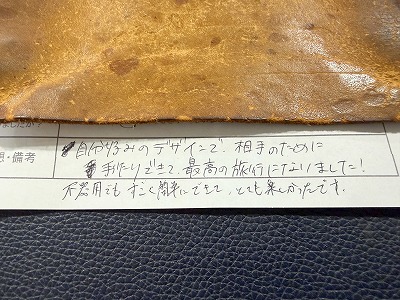 ましたか？
自分好みのデザインで、相手のために
想・備考
手作りできて、最高の旅行になりました！
不器用でもすごく簡単にできて、とても楽しかったです。